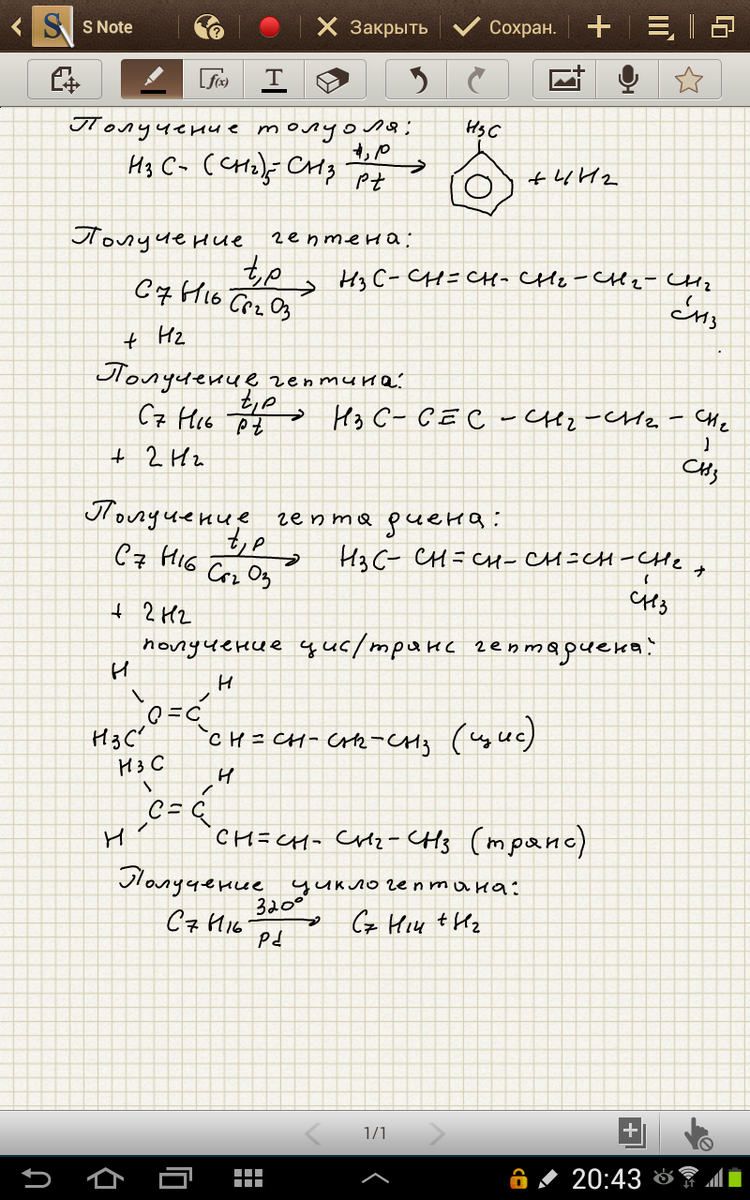 S Note
Закрыть
Сохран.
f(x)
T
Получение толуола:
H3C
H3C - (CH2)5 - CH3 t, p Pt → + 4H2
Получение гептена:
C7H16 t, p Cr2O3 → H3C - CH = CH - CH2 - CH2 - CH2
CH3
+ H2
Получение гептина:
C7H16 t, p Pt → H3C - C ≡ C - CH2 - CH2 - CH2
CH3
+ 2H2
Получение гептадиена:
C7H16 t, p Cr2O3 → H3C - CH = CH - CH = CH - CH2 +
CH3
+ 2H2
получение цис/транс гептадиена:
H H
C = C
H3C CH = CH - CH2 - CH3 (цис)
H3C H
C = C
H CH = CH - CH2 - CH3 (транс)
Получение циклогептана:
C7H16 320° Pd → C7H14 + H2
1/1
20:43